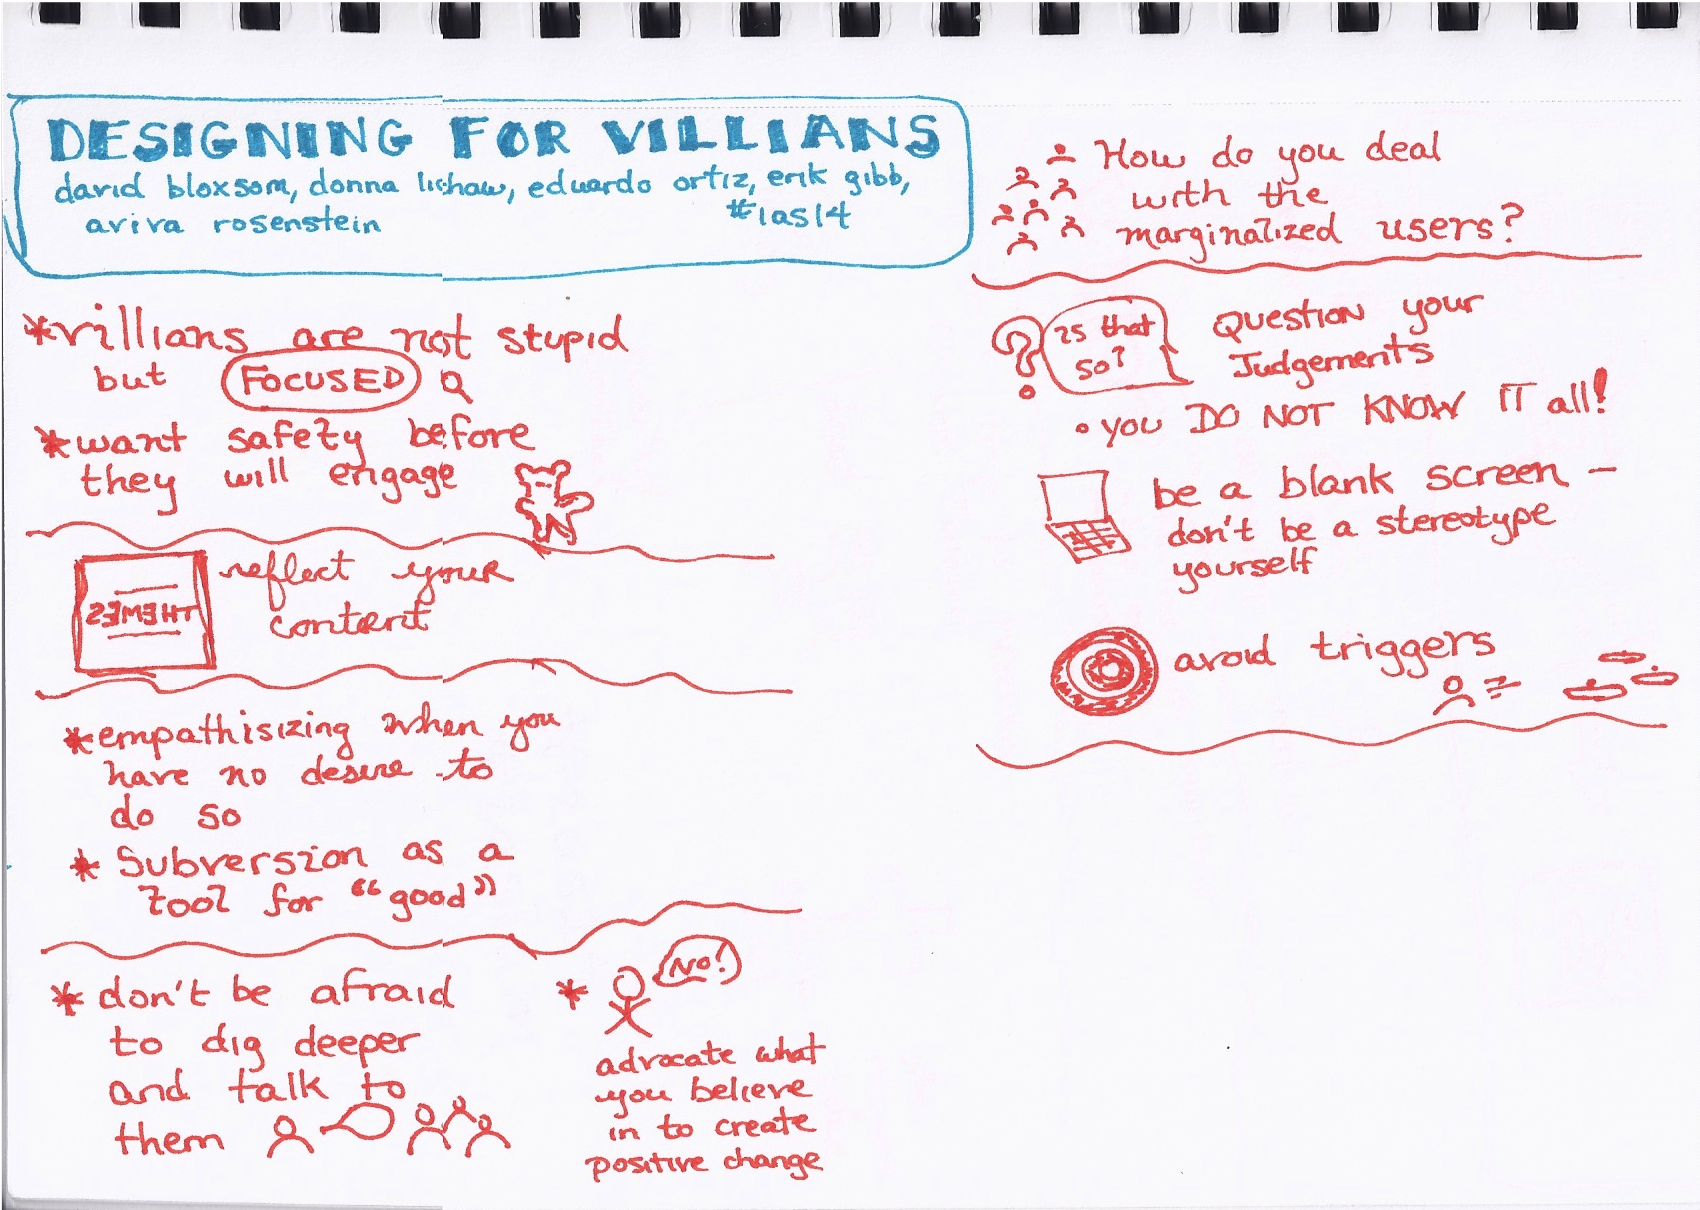 DESIGNING FOR VILLIANS
david bloxsom, donna lichaw, eduardo ortiz, erik gibb,
aviva rosenstein #ias14
*villians are not stupid
but FOCUSED
*want safety before
they will engage
THEMES
reflect your
content
*empathisizing when you
have no desire to
do so
* Subversion as a
tool for "good"
* don't be afraid
to dig deeper
and talk to
them
* NO!
advocate what
you believe
in to create
positive change
How do you deal
with the
marginalized users?
? is that
so?
Question your
Judgements
• you DO NOT KNOW IT all!
be a blank screen –
don't be a stereotype
yourself
avoid triggers